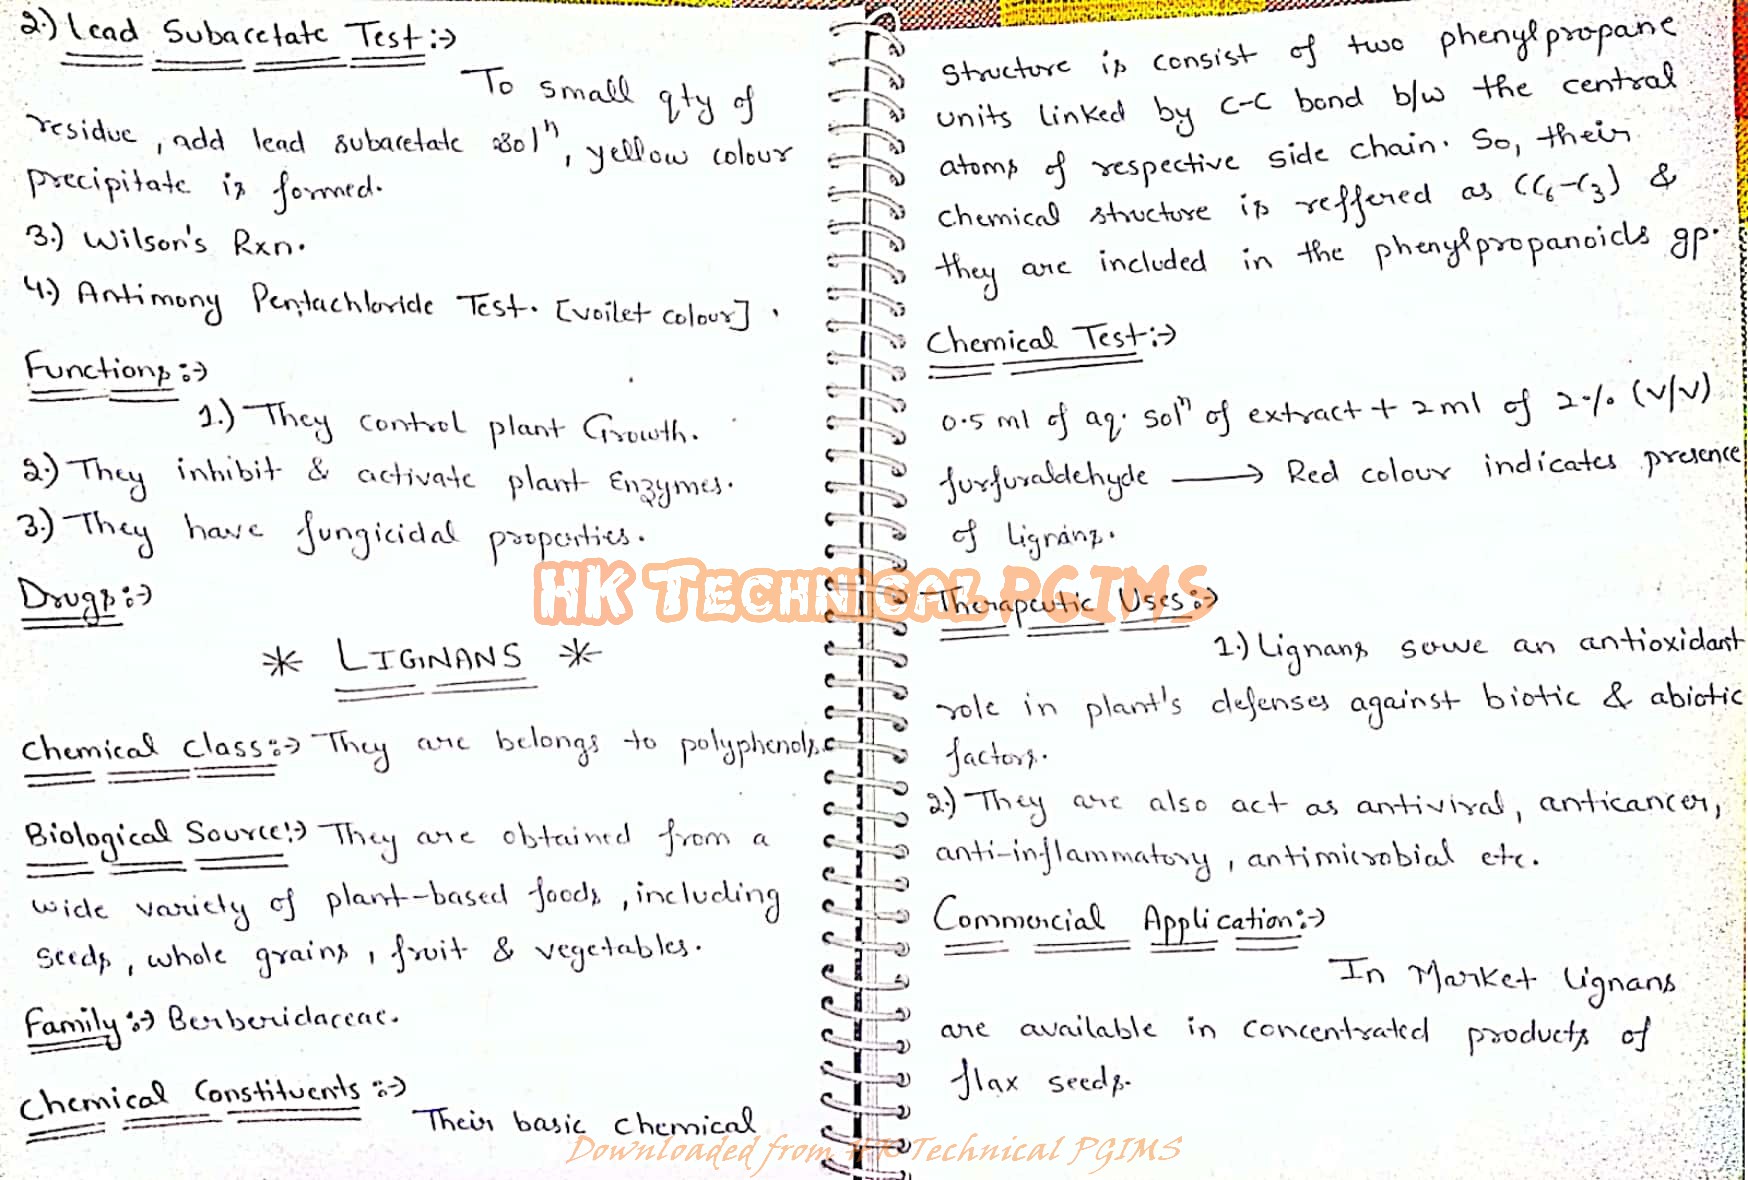 2.) Lead Subacetate Test :->
To small qty of
residue, add lead subacetate solⁿ, yellow colour
precipitate is formed.
3.) Wilson's Rxn.
4.) Antimony Pentachloride Test. [voilet colour].
Functions :->
1.) They control plant Growth.
2.) They inhibit & activate plant Enzymes.
3.) They have fungicidal properties.
Drugs :->
* LIGNANS *
Chemical class :-> They are belongs to polyphenols.
Biological Source :-> They are obtained from a
wide variety of plant-based foods, including
seeds, whole grains, fruit & vegetables.
Family :-> Berberidaceae.
Chemical Constituents :->
Their basic chemical
structure is consist of two phenylpropane
units linked by C-C bond b/w the central
atoms of respective side chain. So, their
chemical structure is reffered as (C₆-C₃) &
they are included in the phenylpropanoids gp.
Chemical Test :->
0.5 ml of aq. solⁿ of extract + 2 ml of 2% (v/v)
furfuraldehyde → Red colour indicates presence
of lignans.
HK TECHNICAL PGIMS
Therapeutic Uses :->
1.) Lignans serve an antioxidant
role in plant's defenses against biotic & abiotic
factors.
2.) They are also act as antiviral, anticancer,
anti-inflammatory, antimicrobial etc.
Commercial Application :->
In Market lignans
are available in concentrated products of
flax seeds.
Downloaded from HK Technical PGIMS